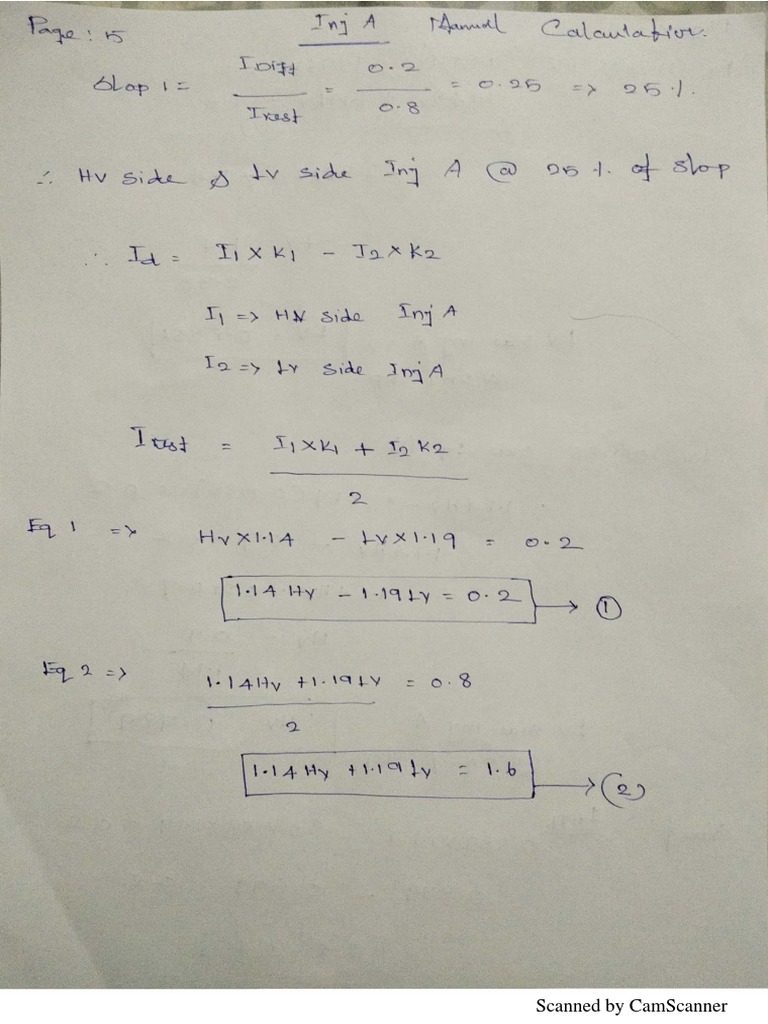 Page: 5
Inj A Manual Calculation.
Slop 1 = IDiff / Irest = 0.2 / 0.8 = 0.25 => 25 %.
∴ HV side & LV side Inj A @ 25 % of slop
∴ Id = I1 X K1 - I2 X K2
I1 => HV side Inj A
I2 => LV side Inj A
Irest = I1 X K1 + I2 K2 / 2
Eq 1 => HV X 1.14 - LV X 1.19 = 0.2
1.14 HV - 1.19 LV = 0.2 → ①
Eq 2 => 1.14 HV + 1.19 LV / 2 = 0.8
1.14 HV + 1.19 LV = 1.6 → (2)
Scanned by CamScanner